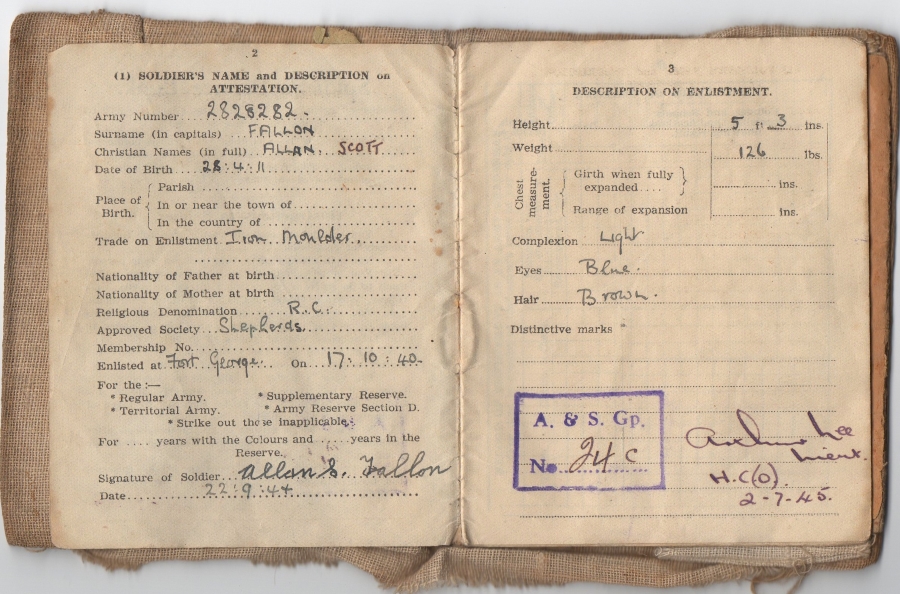 2
(1) SOLDIER'S NAME and DESCRIPTION on
ATTESTATION.
Army Number 2828282.
Surname (in capitals) FALLON
Christian Names (in full) ALLAN. SCOTT
Date of Birth 28.4.11
Place of Birth.
Parish
In or near the town of
In the country of
Trade on Enlistment Iron Moulder.
Nationality of Father at birth
Nationality of Mother at birth
Religious Denomination R.C.
Approved Society Shepherds.
Membership No.
Enlisted at Fort George. On 17.10.40.
For the :—
* Regular Army. * Supplementary Reserve.
* Territorial Army. * Army Reserve Section D.
* Strike out those inapplicable.
For .... years with the Colours and ..... years in the
Reserve.
Signature of Soldier Allan S. Fallon
Date 22.9.44
3
DESCRIPTION ON ENLISTMENT.
Height 5 ft 3 ins.
Weight 126 lbs.
Chest measurement.
Girth when fully
expanded.... ins.
Range of expansion ins.
Complexion Light
Eyes Blue.
Hair Brown.
Distinctive marks
A. & S. Gp.
No. 24 C
Lee
Lieut.
H.C(O).
2-7-45.